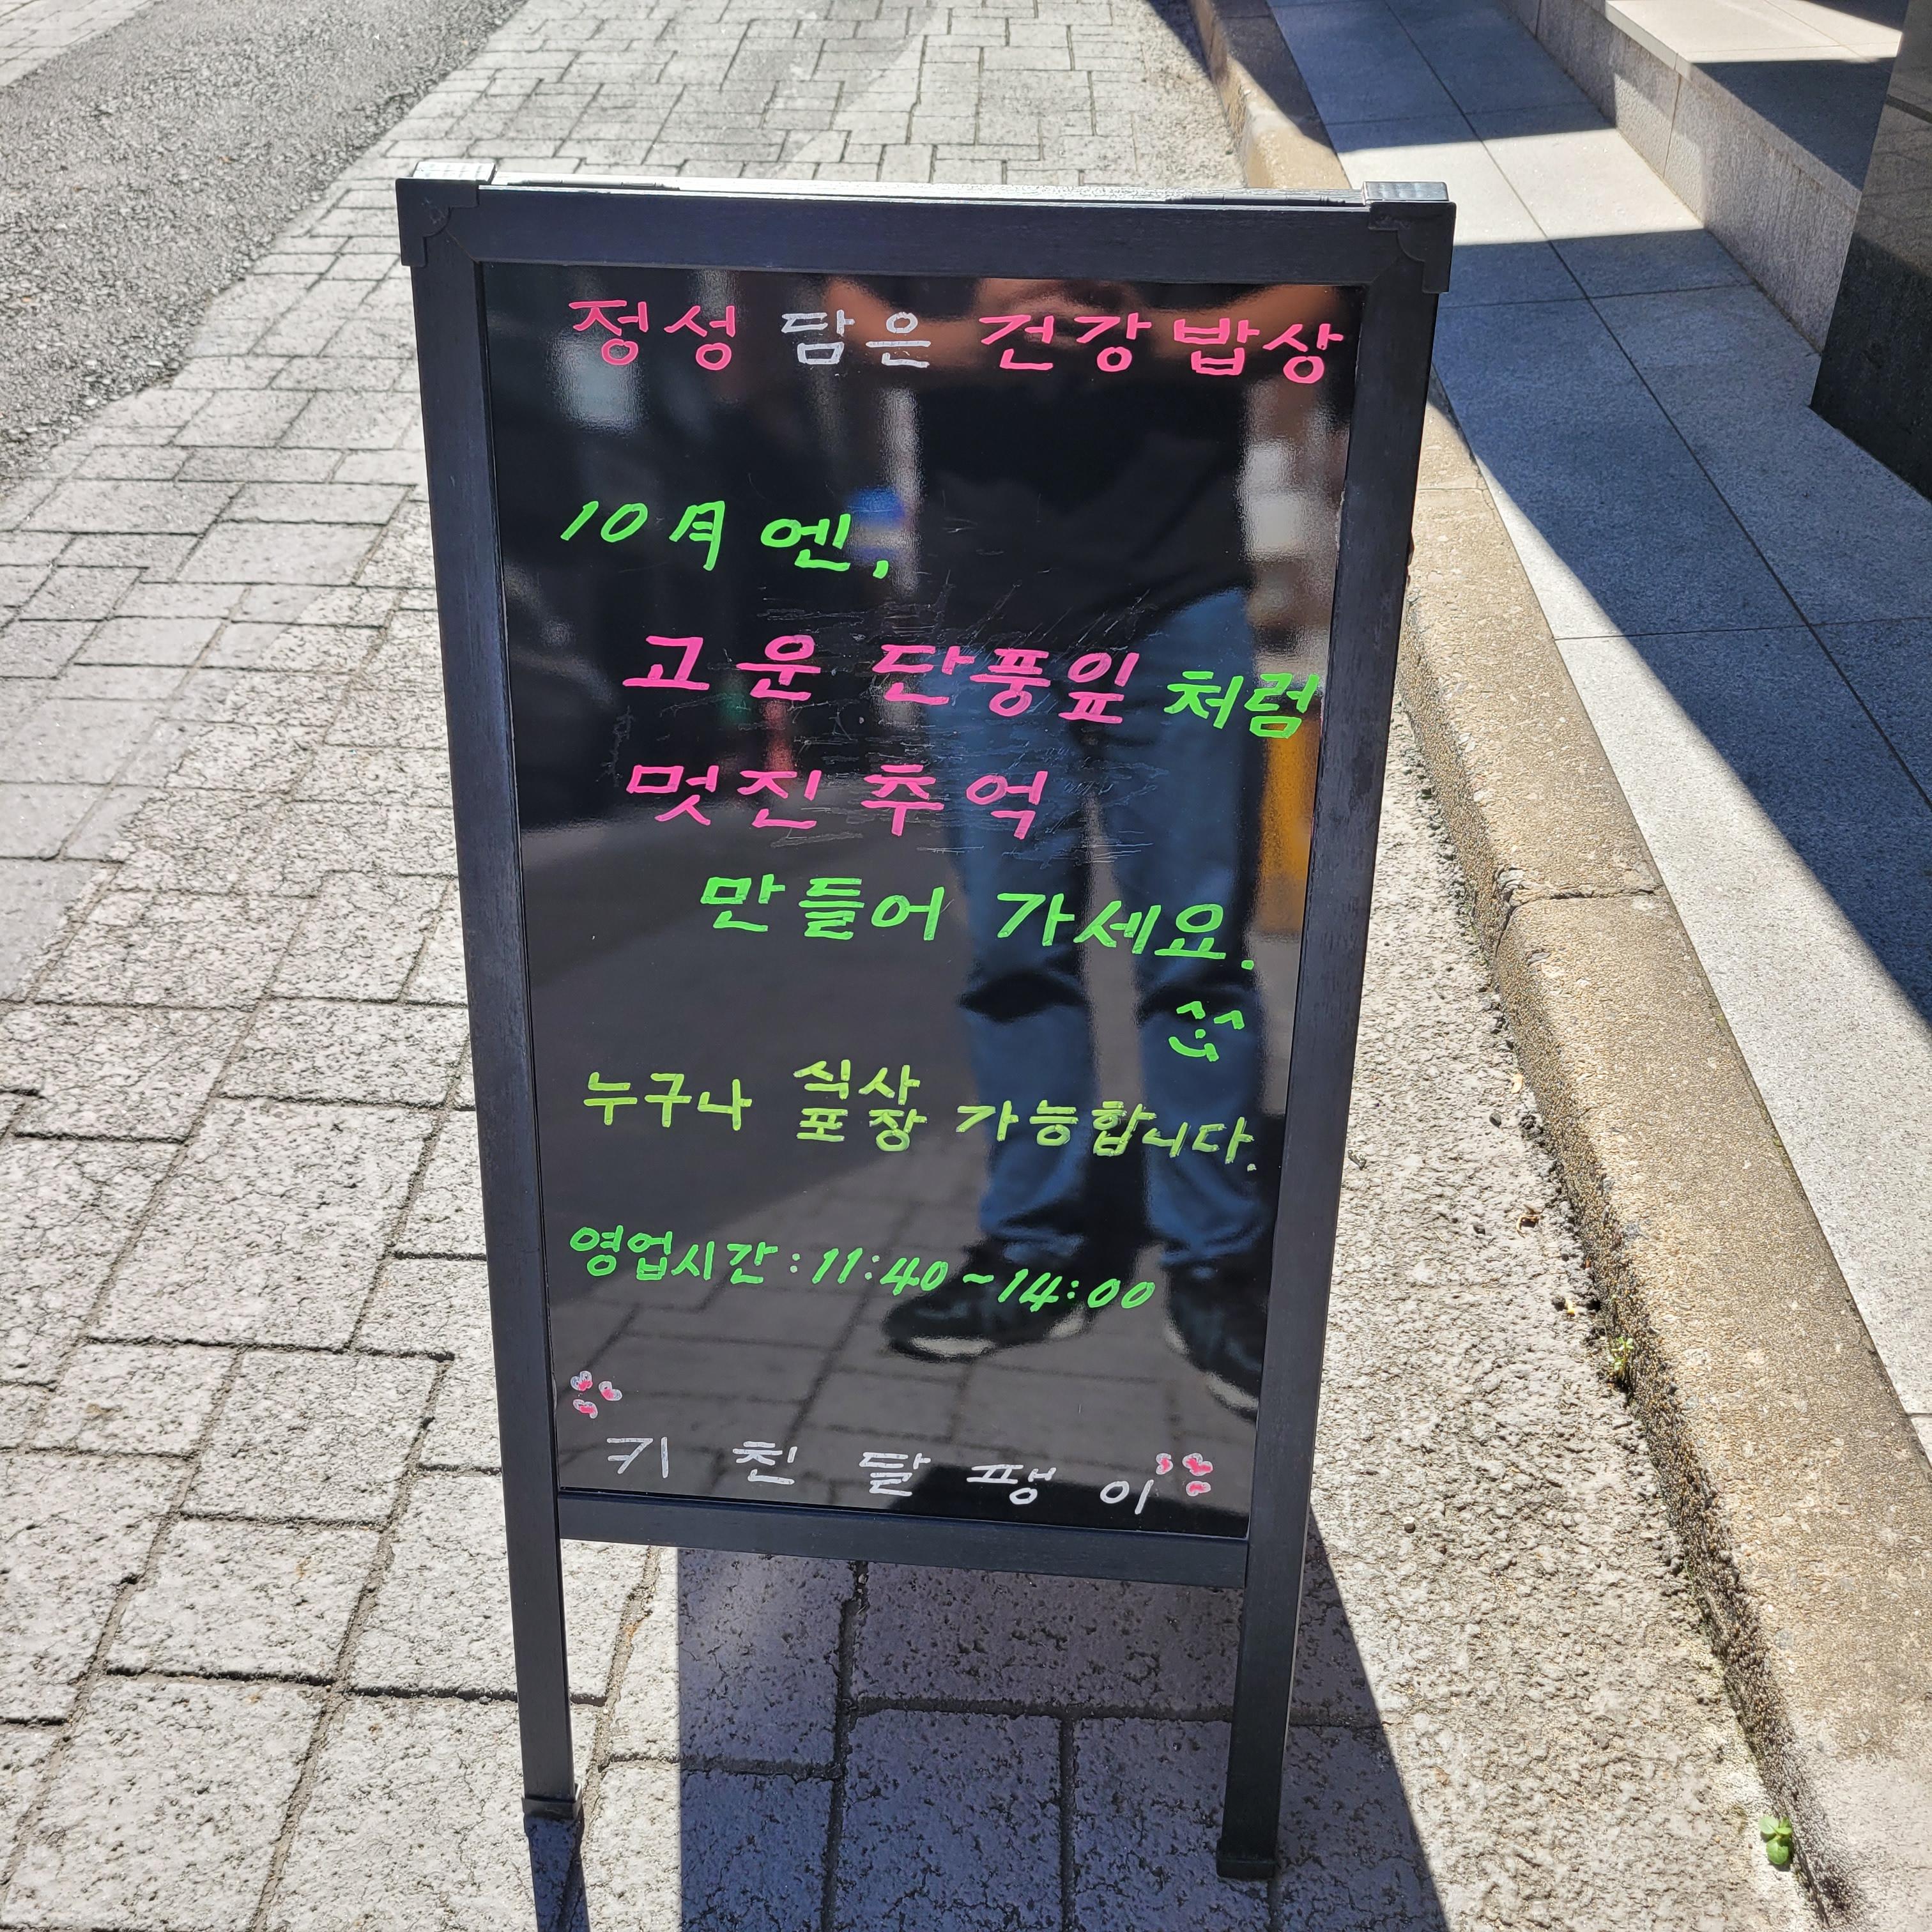 정성 담은 건강밥상
10月엔,
고운 단풍잎처럼
멋진 추억
만들어 가세요.
^^
누구나 식사 포장 가능합니다.
영업시간 : 11:40 ~ 14:00
키친 달팽이